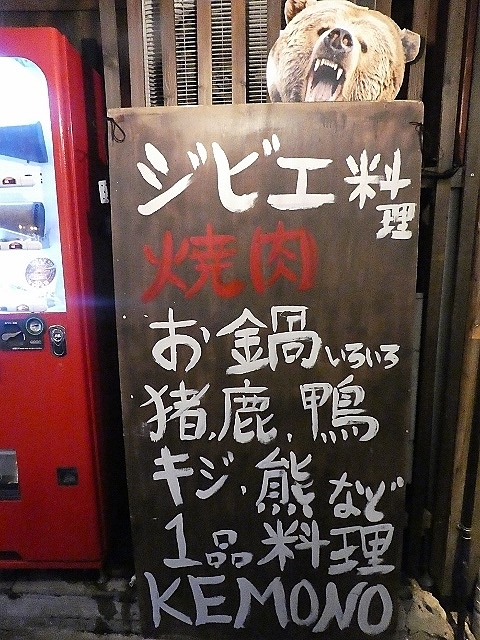 ジビエ料理
焼肉
お鍋いろいろ
猪.鹿.鴨
キジ.熊など
1品料理
KEMONO